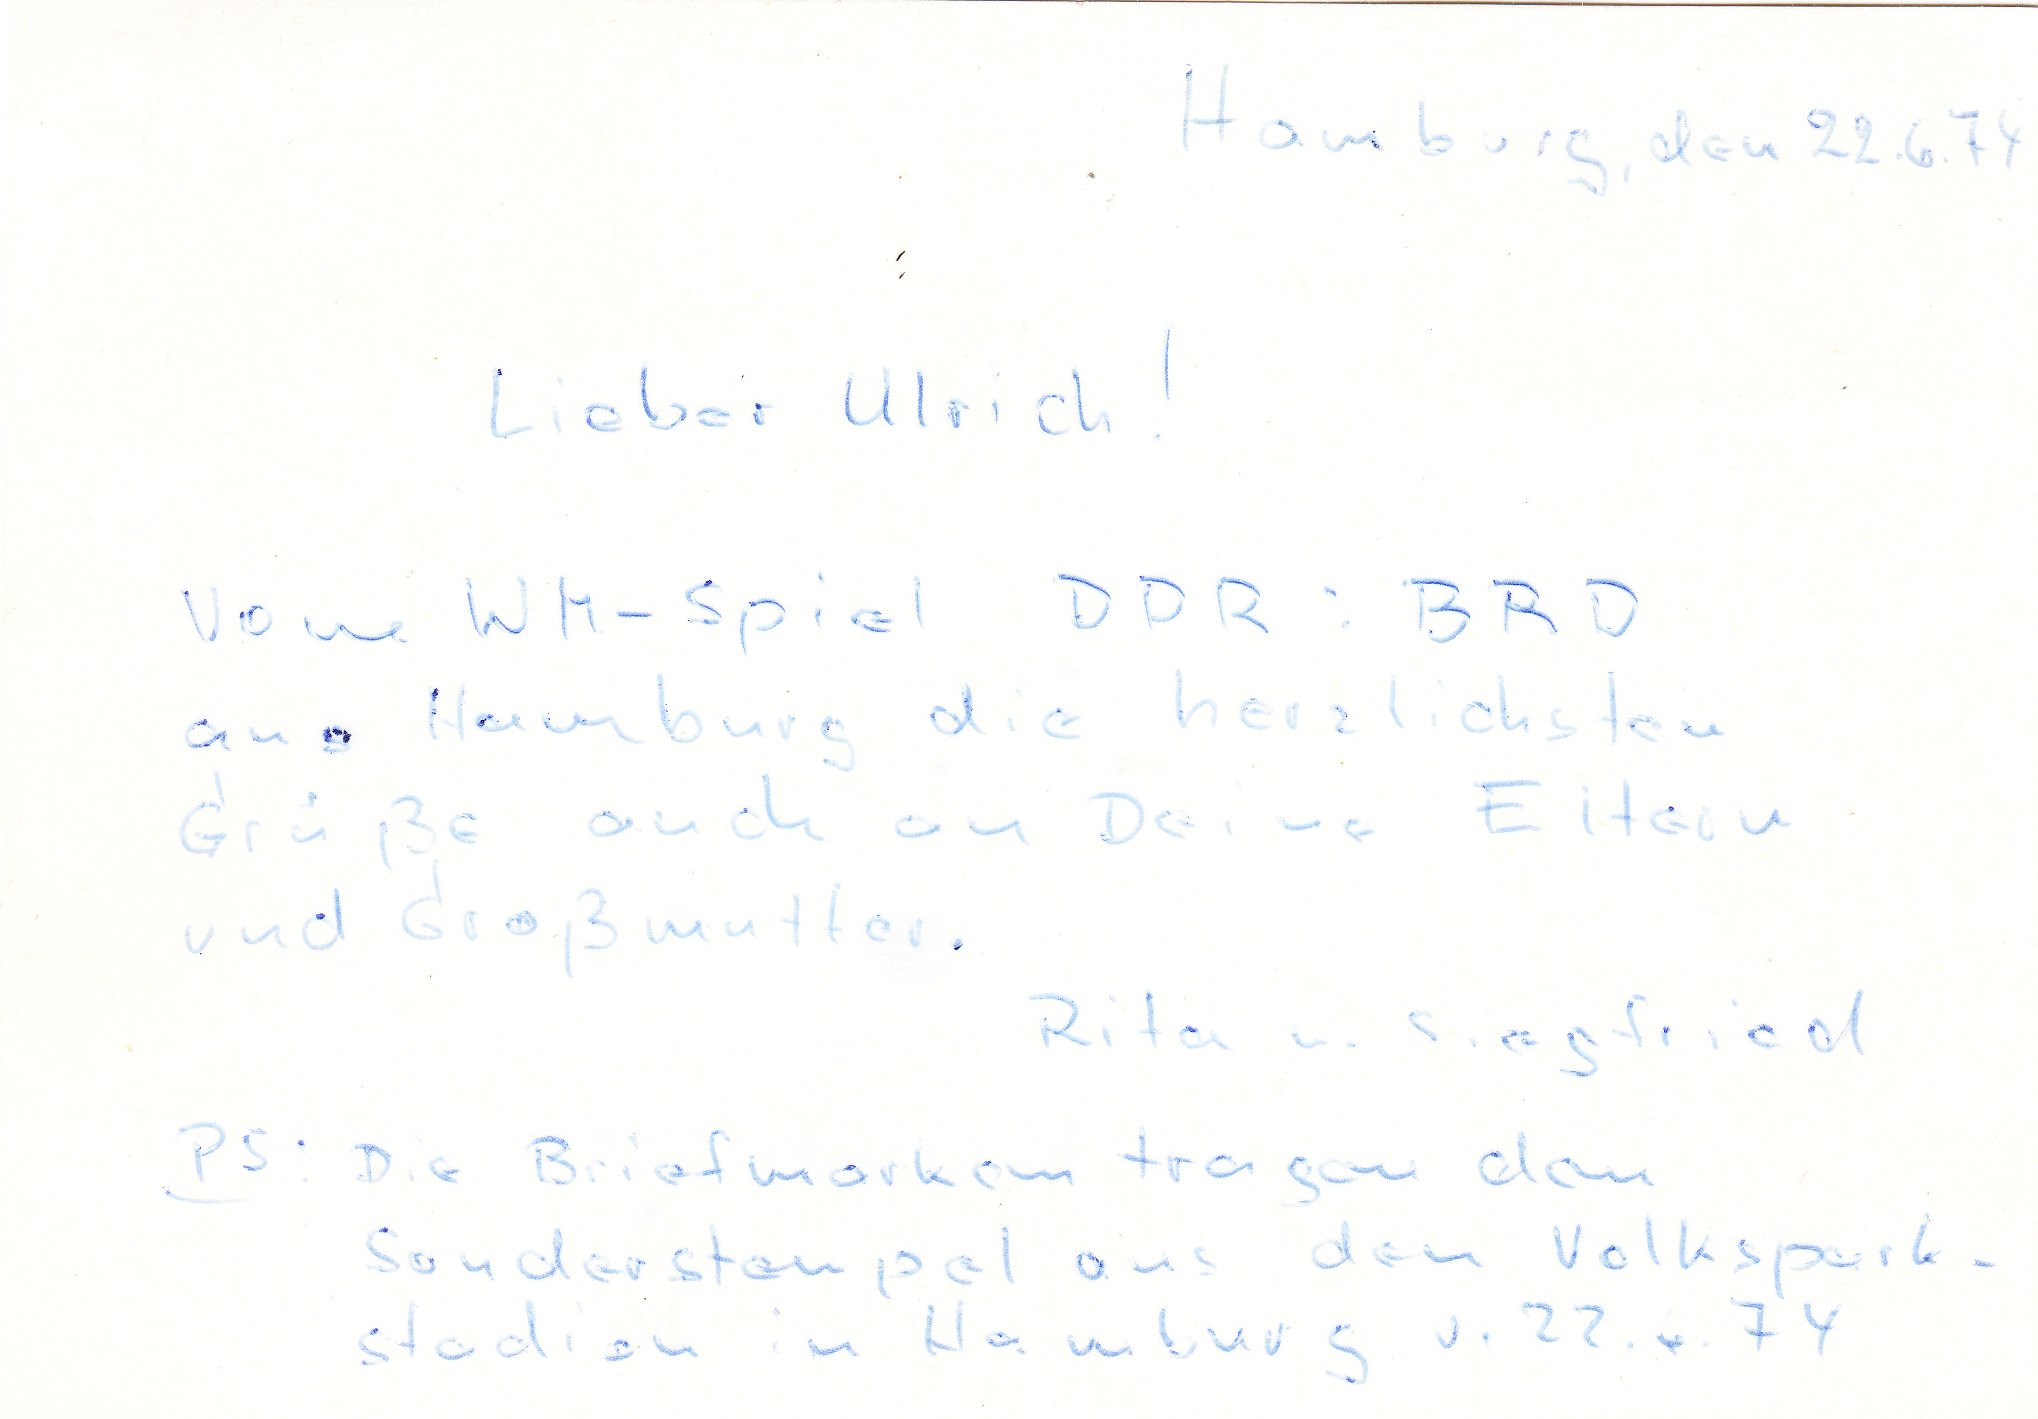 Hamburg, den 22.6.74
Lieber Ulrich!
Vom WM-Spiel DDR : BRD
aus Hamburg die herzlichsten
Grüße auch an Deine Eltern
und Großmutter.
Rita u. Siegfried
PS: Die Briefmarken tragen den
Sonderstempel aus dem Volkspark-
stadion in Hamburg v. 22.6.74